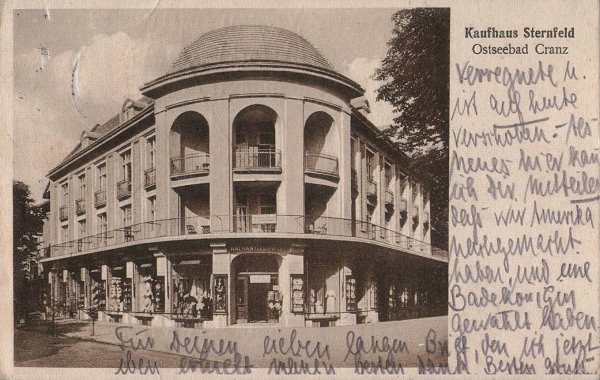 Kaufhaus Sternfeld
Ostseebad Cranz
verregnete u.
ist auf heute
verschoben.
neues hier kan
ich Dir mitteilen
daß wir Amerika
nachgemacht
haben, und eine
Badekönigin
gewählt haben.
Für Deinen lieben langen
eben erhielt meinen besten Dank, den ich jetzt
Besten Gruß
KAUFHAUS